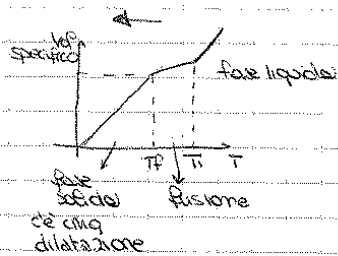 Vol
specifico
fase liquida
Tf Ti T
fase
solida
fusione
c'è cmq
dilatazione